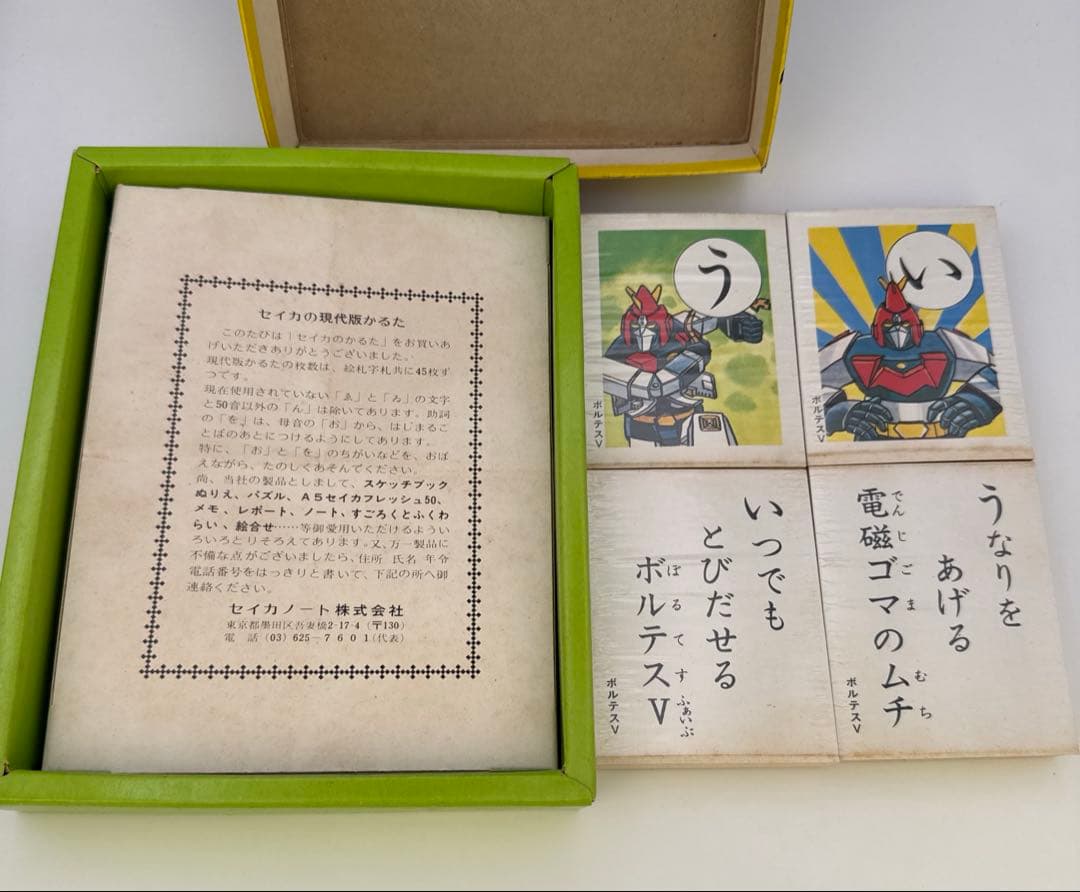 セイカの現代版かるた
このたびは「セイカのかるた」をお買いあ
げいただきありがとうございました。
現代版かるたの枚数は、絵札字札共に45枚ず
つです。
現在使用されていない「ゑ」と「ゐ」の文字
と50音以外の「ん」は除いてあります。助詞
の「を」は、母音の「お」から、はじまるこ
とばのあとにつけるようにしてあります。
特に、「お」と「を」のちがいなどを、おぼ
えながら、たのしくあそんでください。
尚、当社の製品としまして、スケッチブック
ぬりえ、パズル、A5セイカフレッシュ50、
メモ、レポート、ノート、すごろくとふくわ
らい、絵合せ……等御愛用いただけるようい
ろいろとりそろえてあります。又、万一製品に
不備な点がございましたら、住所 氏名 年令
電話番号をはっきりと書いて、下記の所へ御
連絡ください。
セイカノート株式会社
東京都墨田区吾妻橋2-17-4（〒130）
電 話 (03) 625-7601(代表)
う
ボルテスV
い
ボルテスV
いつでも
とびだせる
ボルテスV
ぼるてすふぁいぶ
ボルテスV
うなりを
あげる
電磁ゴマのムチ
でんじごまむち
ボルテスV